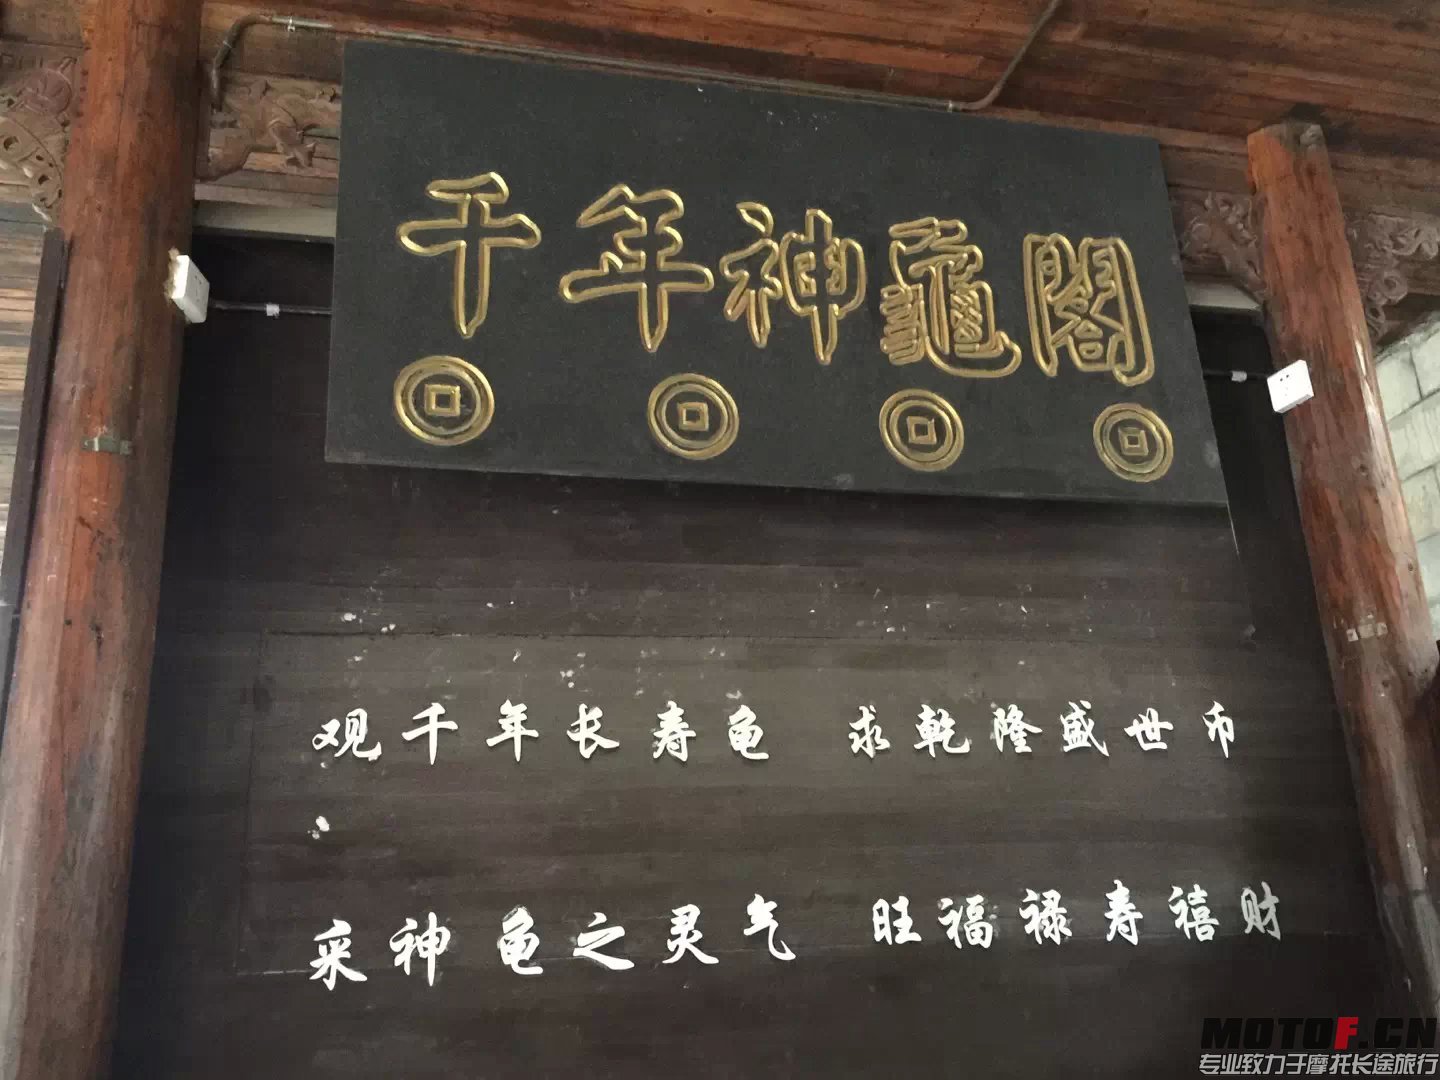 千年神龜閣
观千年长寿龟 求乾隆盛世币
采神龟之灵气 旺福禄寿禧财
MOTOF.CN
专业致力于摩托长途旅行